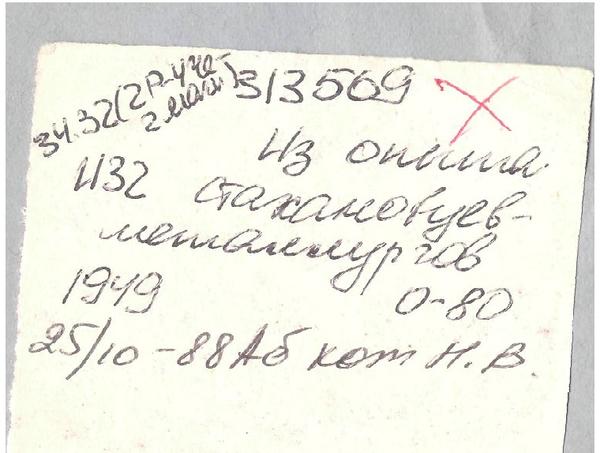 34.32(2Р-
313509
Из опыта
И32 стахановцев-
металлургов
1949 0-80
25/10-88 Аб кат Н. В.